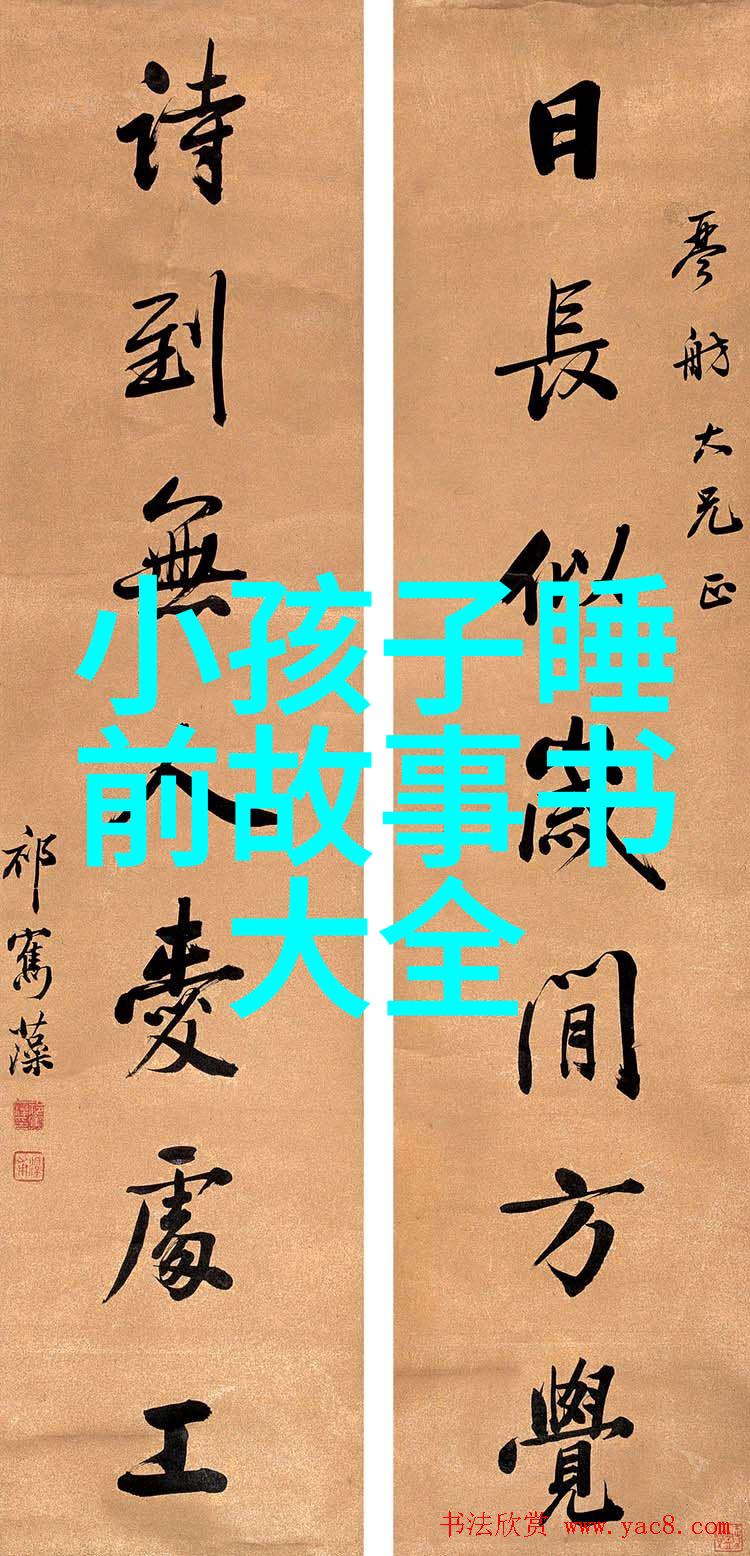 琴舫大兄正
日長似歲閒方覺
詩到無人愛處工
祁寯藻
小孩子睡
前故事书
大全
书法欣赏 www.yac8.com